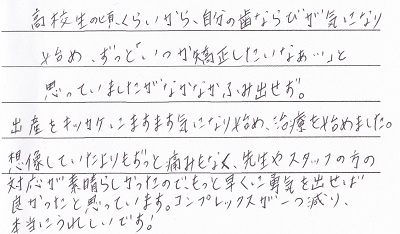 高校生の頃くらいから、自分の歯ならびが気になり
始め、ずっと「いつか矯正したいなぁ…」と
思っていましたがなかなかふみ出せず。
出産をキッカケにますます気になり始め、治療を始めました。
想像していたよりもずっと痛みもなく、先生やスタッフの方の
対応が素晴らしかったのでもっと早くに勇気を出せば
良かったと思っています。コンプレックスが一つ減り、
本当にうれしいです!